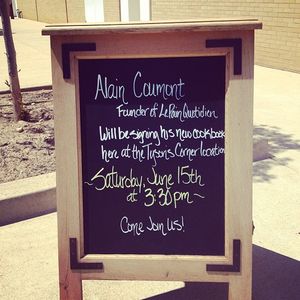 Alain Coumont
Founder of Le Pain Quotidien
Will be signing his new cookbook
here at the Tysons Corner location
Saturday, June 15th
~ at 3:30pm ~
Come Join Us!